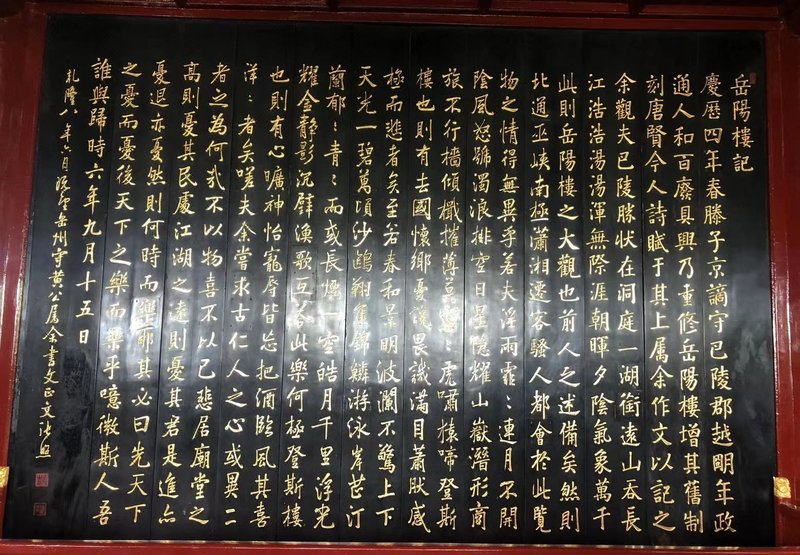 岳陽樓記
慶歷四年春滕子京謫守巴陵郡越眀年政
通人和百廢具興乃重修岳陽樓增其舊制
刻唐賢今人詩賦于其上屬余作文以記之
余觀夫巴陵勝狀在洞庭一湖銜遠山吞長
江浩浩湯湯渾無際涯朝暉夕陰氣象萬千
此則岳陽樓之大觀也前人之述備矣然則
北通巫峽南極瀟湘遷客騷人都會於此覽
物之情得無異乎若夫淫雨霏〻連月不開
陰風怒號濁浪排空日星隱耀山嶽潛形商
旅不行檣傾檝摧薄暮冥〻虎嘯猿啼登斯
樓也則有去國懷鄉憂讒畏譏滿目蕭然感
極而悲者矣至若春和景明波瀾不驚上下
天光一碧萬頃沙鷗翔集錦鱗游泳岸芷汀
蘭郁〻青〻而或長煙一空皓月千里浮光
耀金靜影沉璧漁歌互答此樂何極登斯樓
也則有心曠神怡寵辱皆忘把酒臨風其喜
洋〻者矣嗟夫余嘗求古仁人之心或異二
者之為何哉不以物喜不以己悲居廟堂之
高則憂其民處江湖之遠則憂其君是進亦
憂退亦憂然則何時而樂耶其必曰先天下
之憂而憂後天下之樂而樂乎噫微斯人吾
誰與歸時六年九月十五日
乾隆八年六月既望岳州守黃公屬余書文正文張照